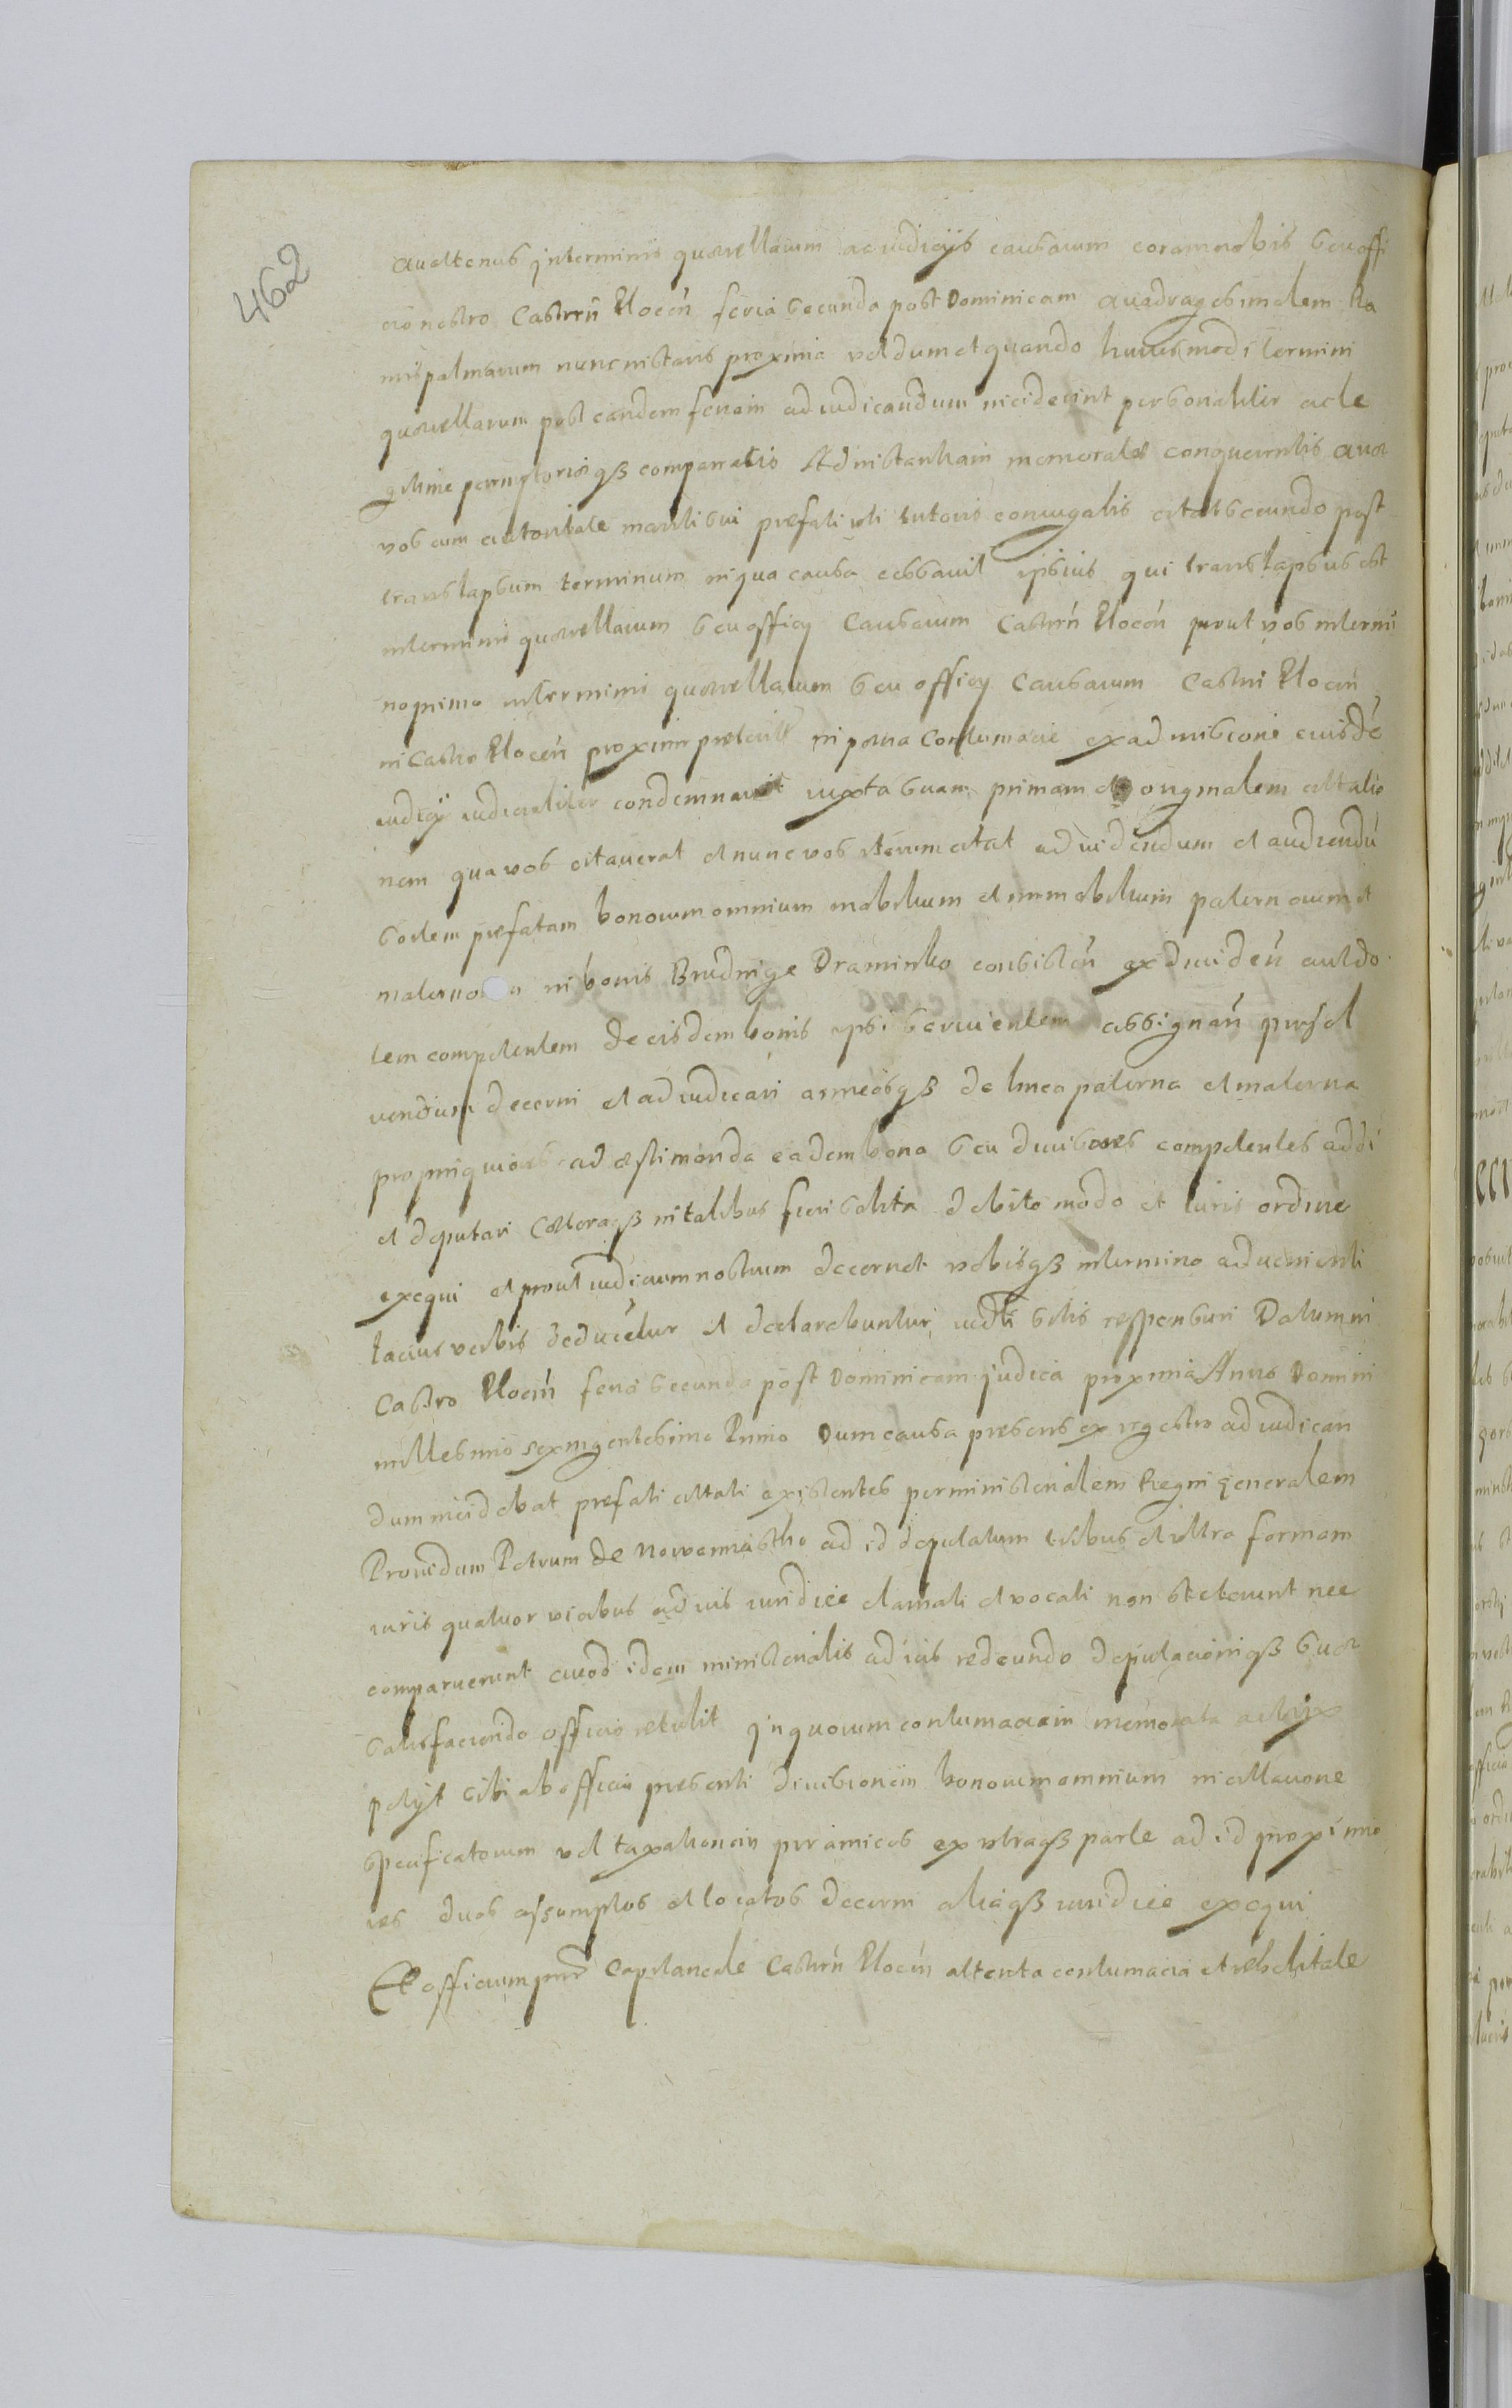 462
Quatenus in terminis querellarum ac iudicijs causarum coram nobis seu offi
cio nostro Castren Plocen feria secunda post Dominicam Quadragesimalem Ra
mispalmarum nunc instans proxima vel dum et quando huiusmodi termini
querellarum post eandem feriam adiudicandum inciderint personaliter ac le
gitime peremptorieqз compareatis Ad instantiam memorate conquerentis Que
vos cum autoritate mariti sui prefati uti tutoris coniugalis citat secundo post
translapsum terminum in qua causa cessavit ipsius qui translapsus est
in termini querellarum seu officij Causarum Castren Plocen prout vos in termi
no primo in termini querellarum seu officij Causarum Castri Plocen
in Castro Plocen proxime preterite in poena Contumacie ex admissione eiusde
iudicij iudicialiter condemnavit iuxta suam primam et originalem citatio
nem qua vos citauerat et nunc vos iterum citat ad uidendum et audiendu
sortem prefatam bonorum omnium mobilium et immobilium paternorum et
maternorum in bonis Brudnige Draminko consisten ex diuiden aut do
tem competentem de eisdem bonis ipsi seruientem assignan
vendium decerni et adiudicari amicosqз de linea paterna et materna
propinquiores ad estimanda eadem bona seu diuisores competentes addi
et deputari Ceteraqз in talibus fieri solita debito modo et Iuris ordine
exequi et prout iudicium nostrum decernet vobisqз in termino aduenienti
lacius verbis deducetur et declarabuntur, iudti sitis responsuri Datum in
Castro Plocen feria secunda post Dominicam Judica proxima Anno Domini
millesimo sexingentesimo Primo Dum causa presens ex regestro adiudican
dum incidebat prefati citati existentes per ministerialem Regni generalem
Prouidum Petrum de Nowemiastho ad id deputatum tribus et vltra formam
iuris quatuor vicibus ad ius iuridice clamati et vocati non steterunt nec
comparuerunt Quod idem ministerialis ad ius redeundo deputacioniqз sue
satisfaciendo officio retulit In quorum contumaciam memorata actrix
petijt sibi ab officio presenti diuisionem bonorum omnium in citatione
specificatorum vel taxationem per amicos ex vtraqз parte ad id proximio
res duos assumptos et locatos decerni aliaqз iuridice exequi
Et officium Capitaneale Castren Plocen attenta contumacia et rebelitate